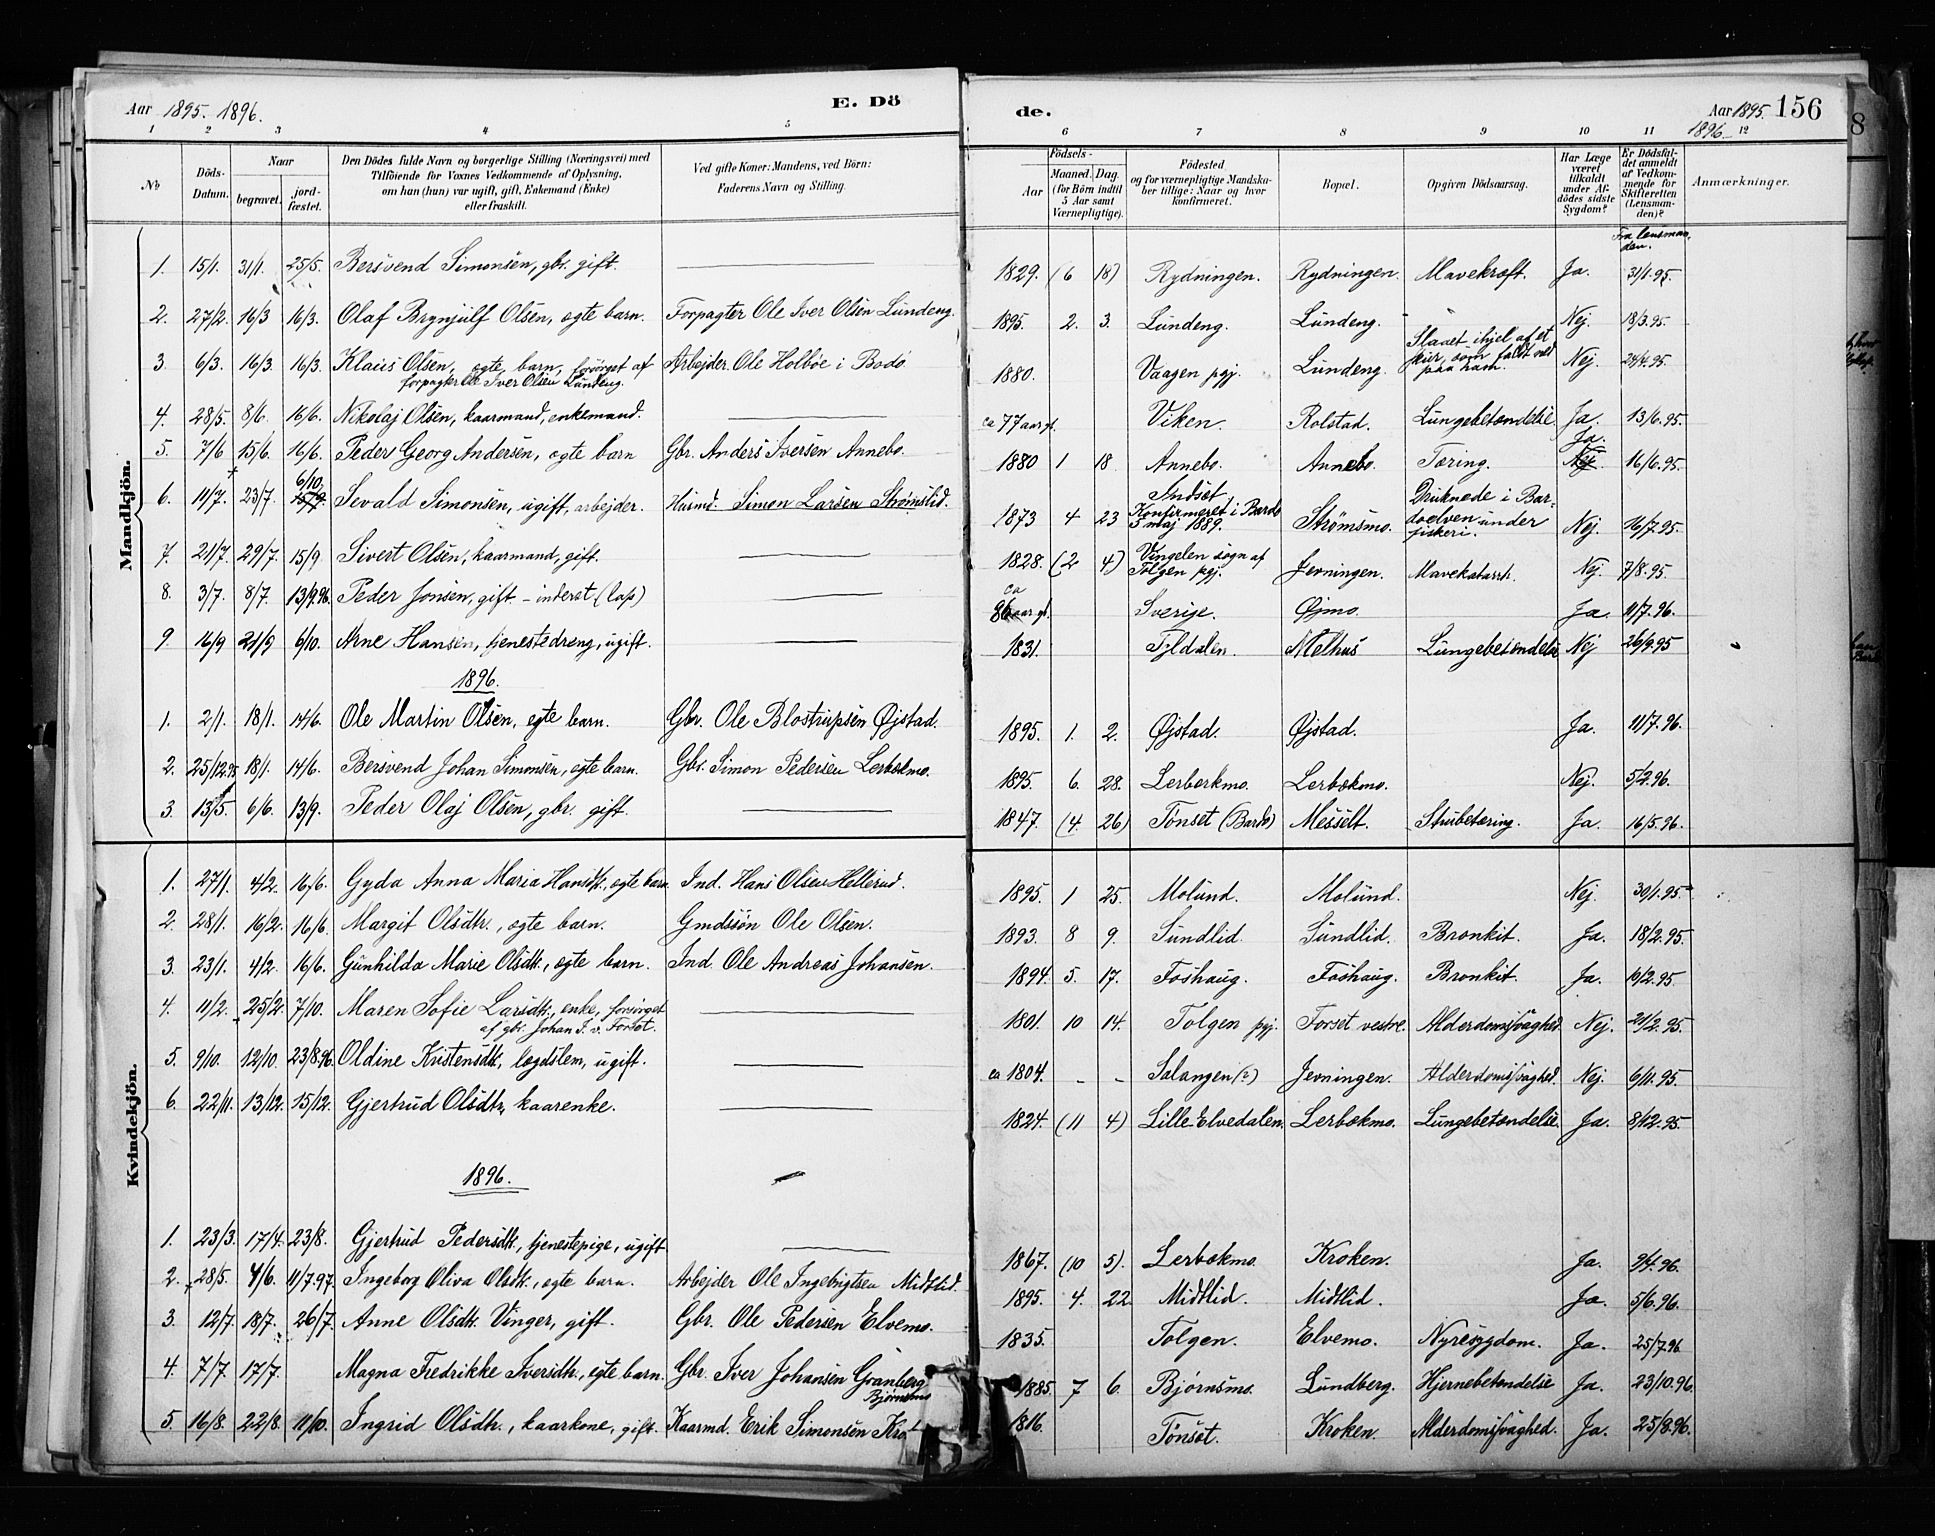 Aar 1895. 1896.
E. Dö
de.
Aar 1895. 1896.
156
1 2 3 4 5 6 7 8 9 10 11 12
No
Döds-Datum.
Naar
begravet.
jord-fæstet.
Den Dödes fulde Navn og borgerlige Stilling (Næringsvei) med Tilföiende for Voxnes Vedkommende af Oplysning, om han (hun) var ugift, gift, Enkemand (Enke) eller fraskilt.
Ved gifte Koner: Mandens, ved Börn: Faderens Navn og Stilling.
Födsels-
Aar
Maaned. Dag.
(for Börn indtil 5 Aar samt Værnepligtige).
Födested, og for værnepligtige Mandskaber tillige: Naar og hvor konfirmeret.
Bopæl.
Opgiven Dödsaarsag.
Har Læge været tilkaldt under Afdödes sidste Sygdom?
Er Dödsfaldet anmeldt af Vedkommende for Skifteretten (Lensmanden)?
Anmærkninger.
Mandkjön.
Fra lensmanden.
1. 15/1. 31/1. 25/5. Bersvend Simonsen, gbr. gift. 1829. (6 18) Rydningen. Rydningen. Mavekræft. Ja. 31/1.95.
2. 27/2. 16/3 16/3. Olaf Brynjulf Olsen, egte barn. Forpagter Ole Iver Olsen Lundeng. 1895. 2. 3. Lundeng. Lundeng. Nej. 18/3.95.
3 6/3. 16/3. 16/3. Klaus Olsen, egte barn, forsörget af forpagter Ole Iver Olsen Lundeng. Arbejder Ole Holböe i Bodö 1880. Vaagen pgj. Lundeng. Slaaet ihjel af et som faldt ned paa ham. Nej. 24/4.95.
4. 28/5. 8/6. 16/6. Nikolaj Olsen, kaarmand, enkemand. ca 77 aar gl. Viken. Rolstad. Lungebetændelse Ja. 13/6.95.
5. 7/6 15/6. 16/6. Peder Georg Andersen, egte barn Gbr. Anders Iversen Annebo. 1880 1 18 Annebo. Annebo. Tæring. Ja. Nej. 16/6.95.
6. 11/7. 23/7. 6/10. 15/9. Sevald Simonsen, ugift, arbejder. Husmd. Simon Larsen Strømslid. 1873 4 23 Indset Konfirmeret i Bardo 5 maj 1889. Strømsmo. Druknede i Bardoelven under fiskeri. Nej. 16/7.95.
7. 21/7. 29/7. 15/9. Sivert Olsen, kaarmand, gift. 1828. (2 4) Vingelen sogn af Tolgen pgj. Jevningen. Mavekatarrh. Nej. 7/8.95.
8. 3/7. 8/7. 13/9.96. Peder Jonsen, gift - inderst (lap) ca 86 aar gl. Sverige. Øjmo. Ja. 11/7.96.
9. 16/9 21/9 6/10. Arne Hansen, tjenestedreng, ugift. 1831. Tyldalen. Melhus Lungebetændelse Nej 26/9.95
1896.
1. 2/1. 18/1. 14/6. Ole Martin Olsen, egte barn. Gbr. Ole Blostrupsen Øjstad. 1895. 1. 2. Øjstad. Øjstad. Ja. 11/7.96.
2. 25/12.95 18/1. 14/6. Bersvend Johan Simonsen, egte barn. Gbr. Simon Pedersen Lerbekmo. 1895. 6. 28. Lerbækmo. Lerbekmo. Nej. 5/2.96.
3. 13/5. 6/6. 13/9. Peder Olaj Olsen, gbr. gift. 1847. (4. 26) Tönset (Bardo) Messelt. Strubetæring. Ja. 16/5.96.
Kvindekjön.
1. 27/1. 4/2. 16/6. Gyda Anna Maria Hansdtr., egte barn. Ind. Hans Olsen Hellerud. 1895. 1 25. Molund. Molund. Nej. 30/1.95
2. 28/1. 16/2. 16/6. Margit Olsdtr., egte barn. Gmdssön Ole Olsen. 1893. 8 9. Sundlid. Sundlid. Bronkit. Ja. 18/2.95.
3. 23/1. 4/2. 16/6. Gunhilda Marie Olsdtr., egte barn. Ind. Ole Andreas Johansen. 1894. 5. 17. Foshaug. Foshaug. Bronkit. Ja. 10/2.95.
4. 11/2. 25/2. 7/10. Maren Sofie Larsdtr., enke, forsörget af gbr. Johan J. v. Forset. 1801. 10 14. Tolgen pgj. Forset vestre. Alderdomssvaghed. Nej. 21/2.95.
5. 9/10. 12/10. 23/8.96. Oldine Kristensdtr., lægdslem, ugift. ca 1804. - - Salangen (?) Jevningen. Alderdomssvaghed. Nej. 6/11.95.
6. 22/11. 13/12. 15/12. Gjertrud Olsdtr, kaarenke. 1824. (11 4) Lille-Elvedalen. Lerbekmo. Lungebetændelse. Ja. 8/12.95.
1896.
1. 23/3. 17/4. 23/8. Gjertrud Pedersdtr., tjenestepige, ugift 1867. (10 5). Lerbekmo. Kroken. Ja. 9/4.96.
2. 28/5. 4/6. 11/7.97. Ingeborg Oliva Olsdtr., egte barn. Arbejder Ole Ingebrigtsen Midtlid. 1895. 4. 22 Midtlid. Midtlid. Ja. 5/6.96.
3. 12/7. 18/7. 26/7. Anne Olsdtr. Vinger, gift. Gbr. Ole Pedersen Elvemo. 1835. Tolgen. Elvemo. Nyresygdom. Ja. 25/7.96
4. 7/7. 17/7. Magna Fredrikke Iversdtr., egte barn. Gbr. Iver Johansen Granberg Bjørnsmo 1885. 7 6. Bjørnsmo. Lundberg. Hjernebetændelse Ja. 23/10.96.
5. 16/8. 22/8. 11/10. Ingrid Olsdtr., kaarkone, gift. Kaarmd. Erik Simonsen 1816. Tönset. Kroken. Alderdomssvaghed. Ja. 25/8.96.